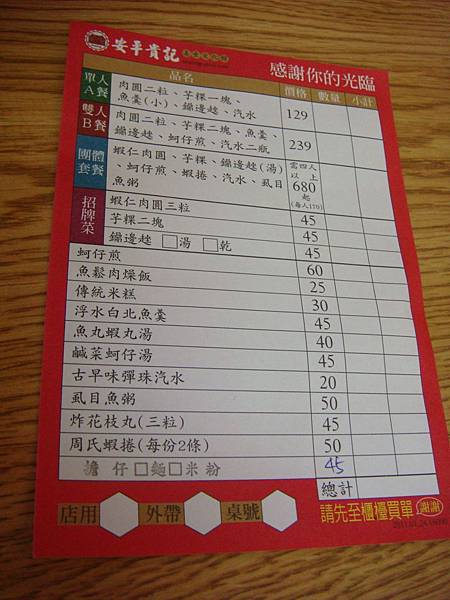 安平貴記
感謝你的光臨
品名 價格 數量 小計
單人A餐 肉圓二粒、芋粿一塊、魚羹(小)、鍋邊趖、汽水 129
雙人B餐 肉圓二粒、芋粿二塊、魚羹、鍋邊趖、蚵仔煎、汽水二瓶 239
團體套餐 蝦仁肉圓、芋粿、鍋邊趖(湯)、蚵仔煎、蝦捲、汽水、虱目魚粥 需四人以上 680起 (每人170)
招牌菜
蝦仁肉圓三粒 45
芋粿二塊 45
鍋邊趖 □湯 □乾 45
蚵仔煎 60
魚鬆肉燥飯 25
傳統米糕 30
浮水白北魚羹 45
魚丸蝦丸湯 40
鹹菜蚵仔湯 45
古早味彈珠汽水 20
虱目魚粥 50
炸花枝丸(三粒) 45
周氏蝦捲(每份2條) 50
擔仔□麵□米粉 45
總計
店用 外帶 桌號 請先至櫃檯買單 謝謝